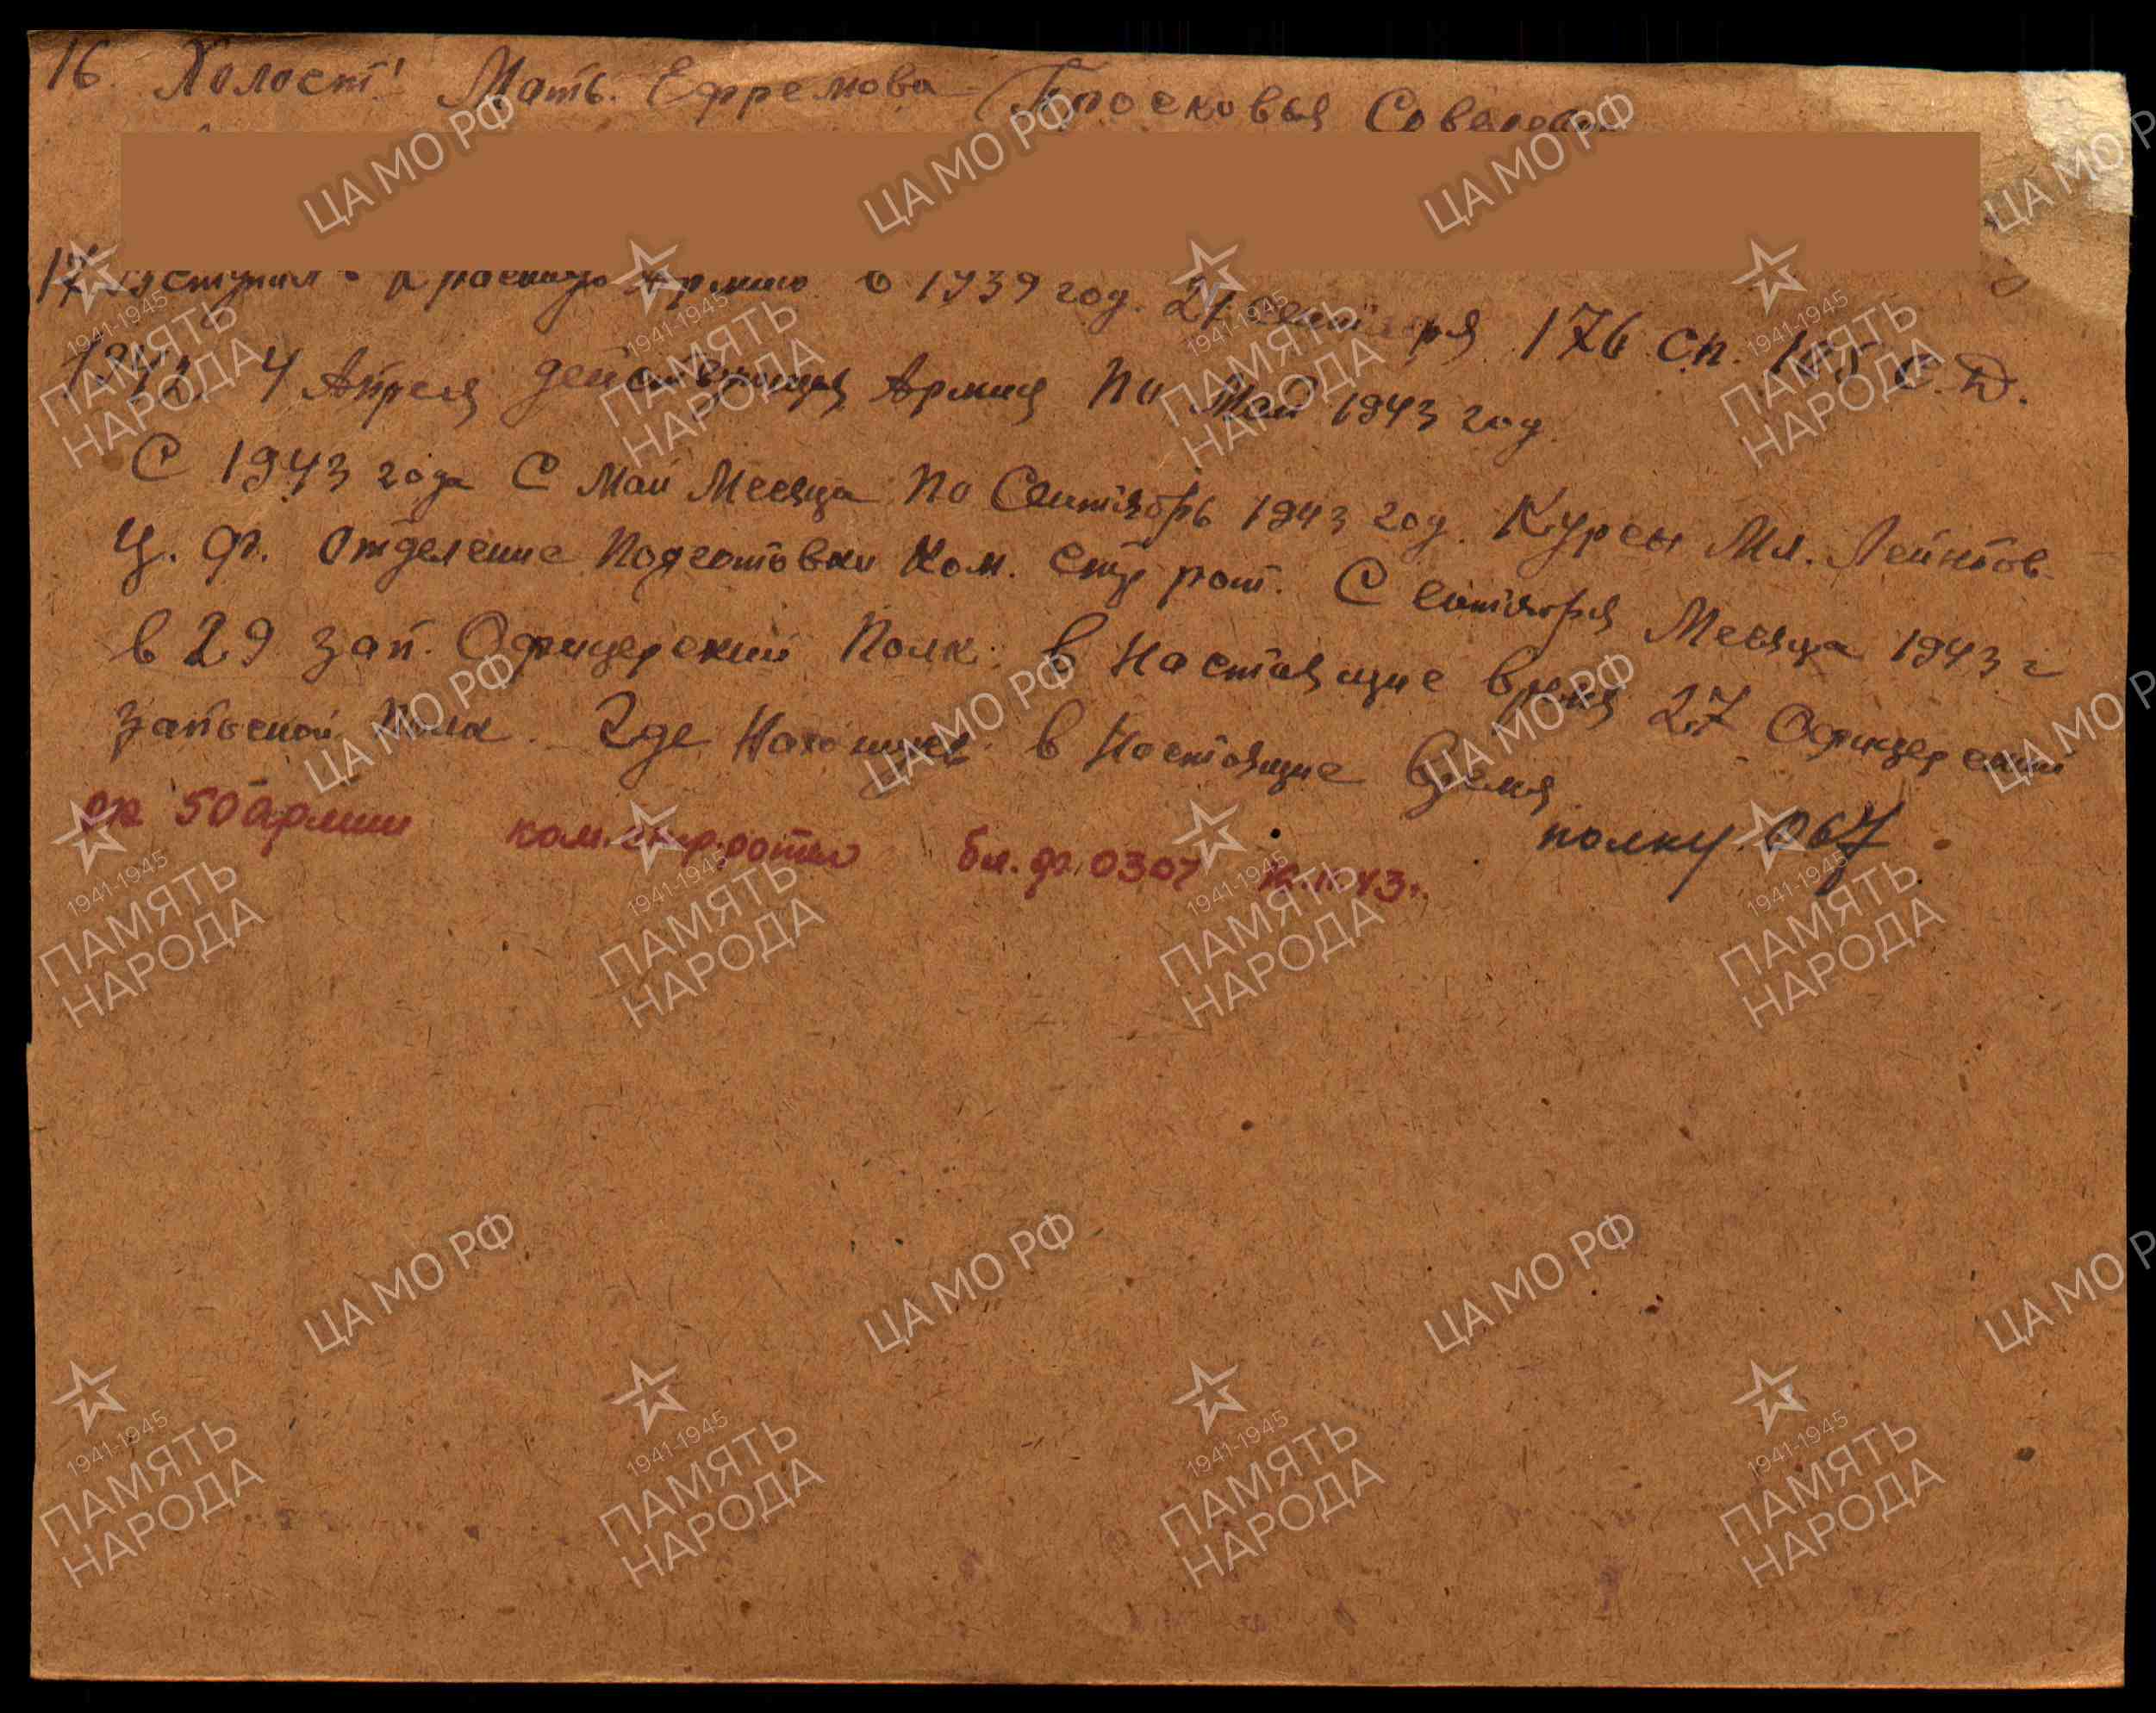 16. Холост! Мать. Ефремова Просковья
17. Вступил в Красную Армию в 1939 год. 21 Сентября 176 сп. С.Д.
1942 4 Апреля действующая Армия по Май 1943 год.
С 1943 года С Май Месяца по Сентябрь 1943 год. Курсы Мл. Лейнтов
Ц. Ф. Отделение Подготовки Ком. Стр рот. С Сентября Месяца 1943 г
в 29 зап. Офицерский Полк. в Настоящие Время 27 Офицерский
Запосной Полк. Где Нахожусь в Настоящие Время
полку 067
50 Армии ком. стр. роты бл. ф. 0307
ЦА МО РФ
1941-1945
ПАМЯТЬ
НАРОДА